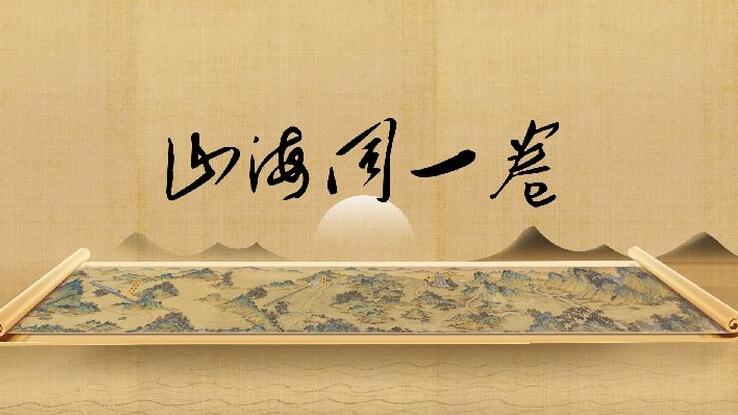 山海同一卷